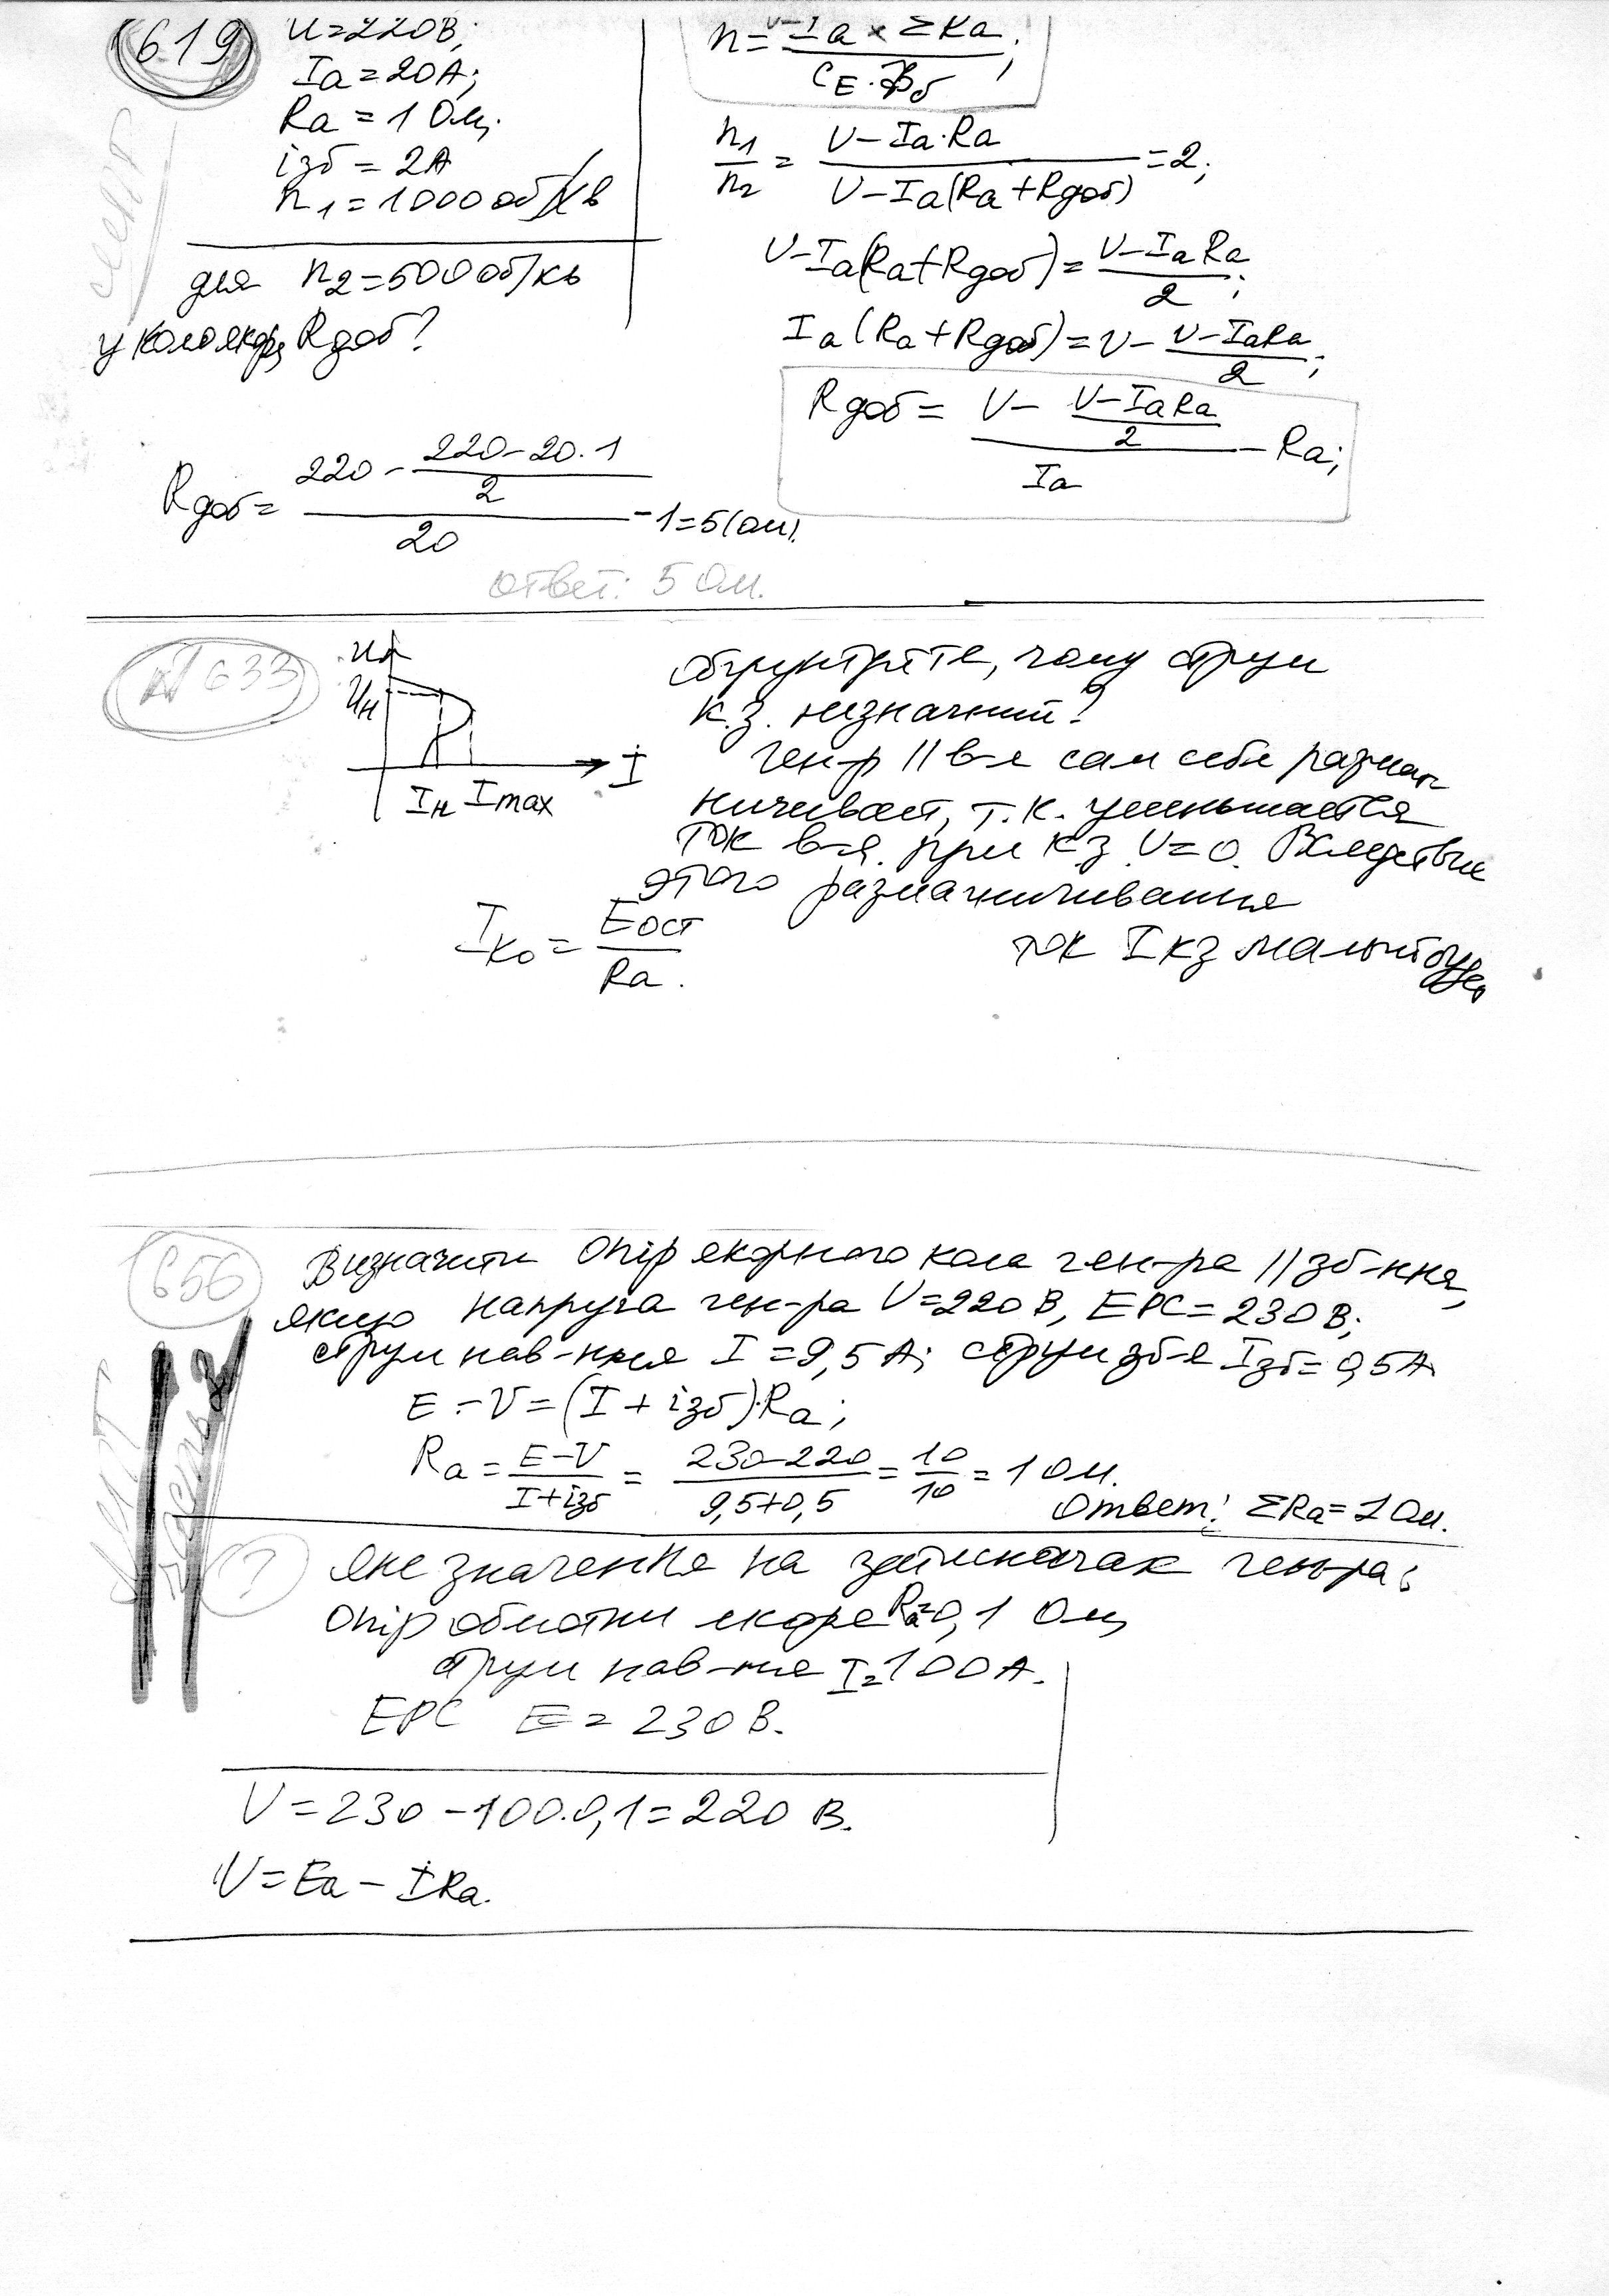 619
U=220В;
Iа=20А;
Rа = 1 Ом;
iзб = 2А
n1=1000 об/хв
для n2=500 об/хв
у коло якоря Rдоб?
n= U-Iа × ΣRа / CE·Фδ;
n1/n2 = U-Iа·Rа / U-Iа(Rа+Rдоб) =2;
U-Iа(Rа+Rдоб)= U-IаRа / 2;
Iа(Rа+Rдоб)=U- U-IаRа / 2;
Rдоб= U- U-IаRа / 2 / Iа -Rа;
Rдоб= 220- 220-20·1 / 2 / 20 -1=5(Ом).
ответ: 5 Ом.
№ 633
U
Uн
I
Iн Imax
обґрунтуйте, чому струм
к.з. незначний?
Ген-р // в-я сам себя размаг-
ничивает, т.к. уменьшается
ток в-я. при кз U=0. Вследствие
этого размагничивания
ток Iкз малый будет
Iко= Eост / Rа.
656
Визначити опір якорного кола ген-ра // зб-ння,
якщо напруга ген-ра U=220 В, ЕРС=230 В;
струм нав-ння I=9,5 А; струм зб-я Iзб=0,5А
E-U=(I+iзб)·Rа;
Rа= E-U / I+iзб = 230-220 / 9,5+0,5 = 10 / 10 = 1 Ом.
Ответ: ΣRа=1 Ом.
?
Яке значення на затискачах ген-ра;
Опір обмотки якоря Rа=0,1 Ом,
струм нав-ння I=100А.
ЕРС E=230 В.
U=230-100·0,1=220 В.
U=Eа-IRа.